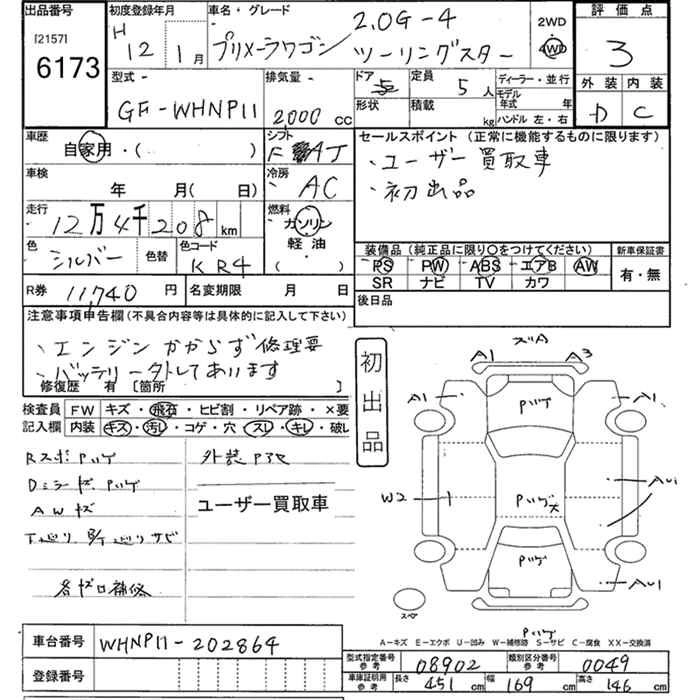 出品番号 初度登録年月 車名・グレード 2WD 評価点
[21571] H 12年1月 プリメーラワゴン 2.0G-4 ツーリングスター 4WD 3
6173
型式 - 排気量 - ドア 定員 ディーラー・並行 外装 内装
GF-WHNP11 2000 cc 5 5人 モデル年式 年 D C
形状 積載 kg ハンドル 左・右
車歴 シフト セールスポイント (正常に機能するものに限ります)
自家用・( ) F AT 、ユーザー買取車
車検 冷房 、初出品
年 月( 日) AC
走行 燃料
12万4千208 km ガソリン
軽油
( )
色 シルバー 色替 色コード KR4
装備品 (純正品に限り○をつけてください) 新車保証書
PS PW ABS エアB AW 有・無
SR ナビ TV カワ
R券 11,740 円 名変期限 月 日 後日品
注意事項申告欄 (不具合内容等は具体的に記入して下さい)
、エンジンかからず修理要
、バッテリー外してあります
修復歴 有 [箇所 ]
初出品
検査員記入欄 FW キズ・飛石・ヒビ割・リペア跡・×要
内装 キズ・汚レ・コゲ・穴・スレ・キレ・破レ
RスポPハゲ 外装P3セ
Dミラーキズ、Pハゲ
AWキズ ユーザー買取車
下廻り、
廻りサビ
各キズ補修
ズA
A1 A3
A1 Pハゲ A1
W2 Pハゲ大 AU1
Pハゲ AU1
スペア
Pハゲ
A-キズ E-エクボ U-凹み W-補修跡 S-サビ C-腐食 XX-交換済
車台番号 WHNP11-202864
型式指定番号 参考 08902 類別区分番号 参考 0049
登録番号
車庫証明用 参考 長さ 451 cm 幅 169 cm 高さ 146 cm